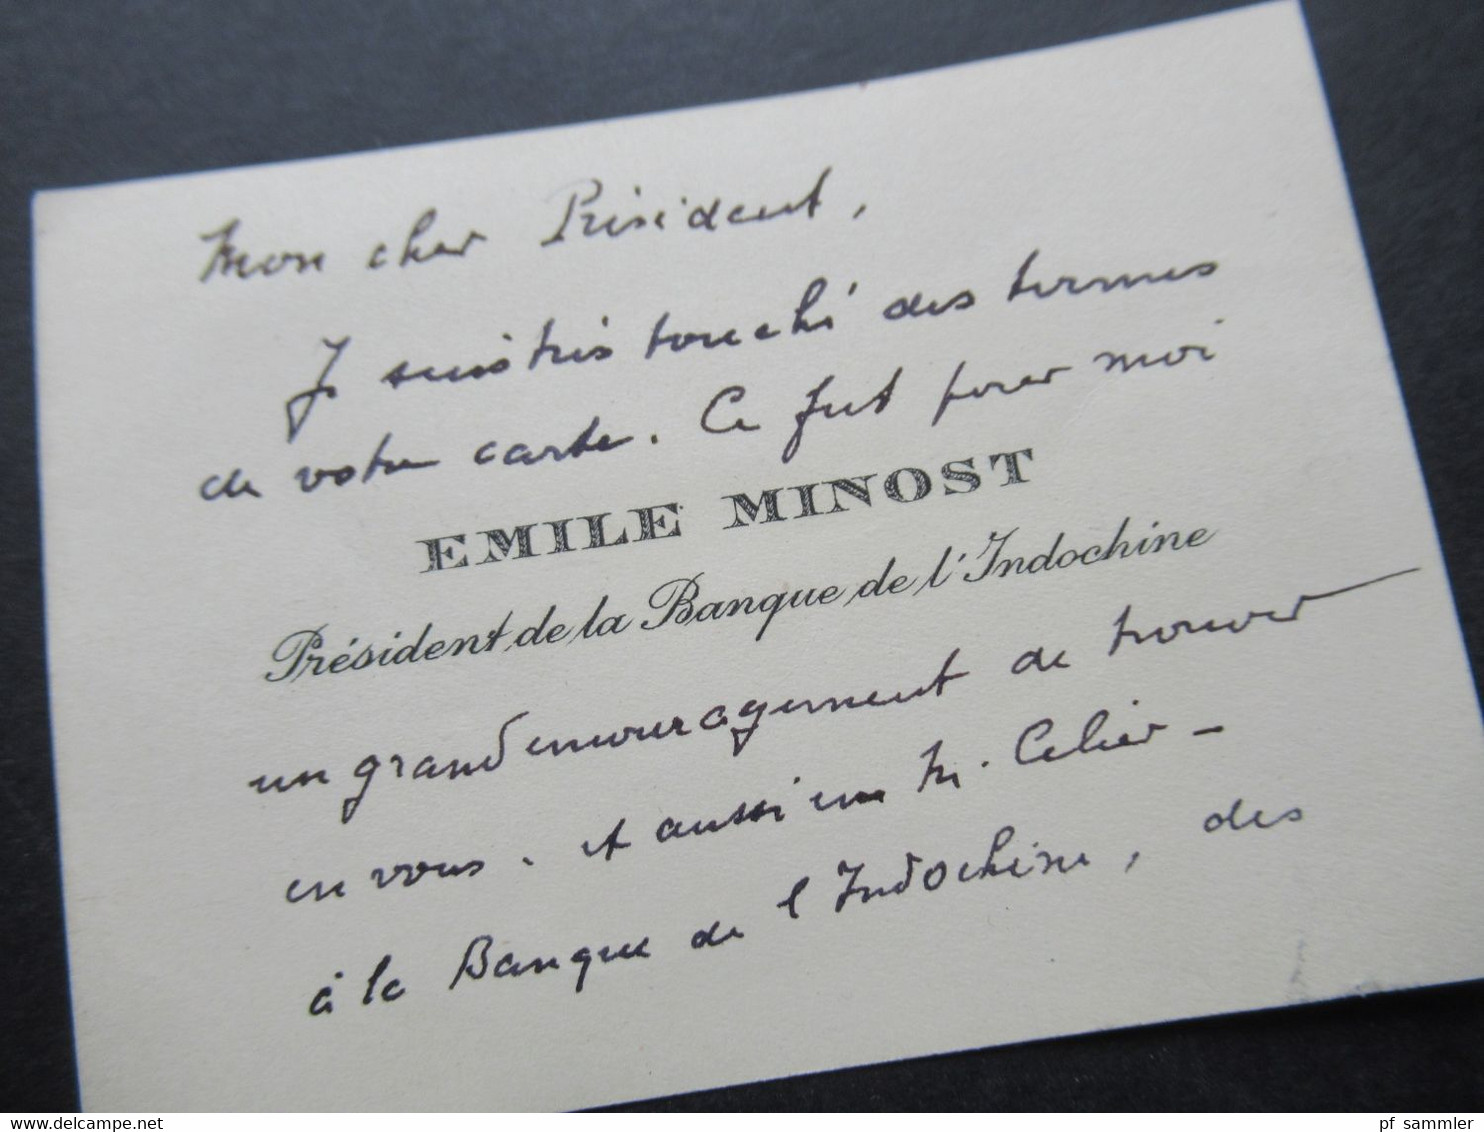 Mon cher Président,
Je suis très touché des termes
de votre carte. Ce fut pour moi
EMILE MINOST
Président de la Banque de l'Indochine
un grand encouragement de trouver
en vous, et aussi en M. Celier -
à la Banque de l'Indochine, des
delcampe.net
pf_sammler